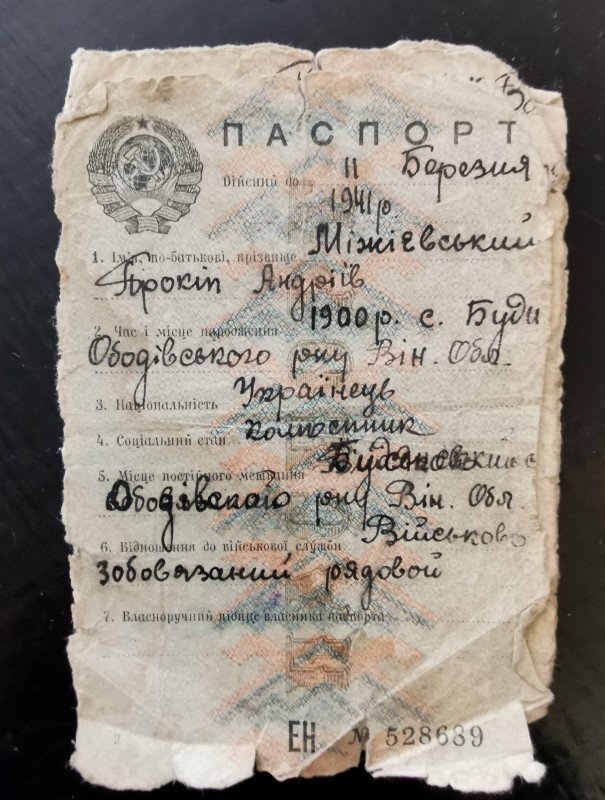 ПАСПОРТ
Дійсний до 11 Березня
1941 р
1. Ім'я, по-батькові, прізвище Міжієвський
Прокіп Андріїв
2. Час і місце народження 1900 р. с. Буди
Ободівського р-ну Він. Обл.
3. Національність Українець
4. Соціальний стан Колгоспник
5. Місце постійного мешкання
Ободівського р-ну Він. Обл.
6. Відношення до військової служби Військово
зобов'язаний рядовой
7. Власноручний підпис власника паспорта
2 ЕН № 528689